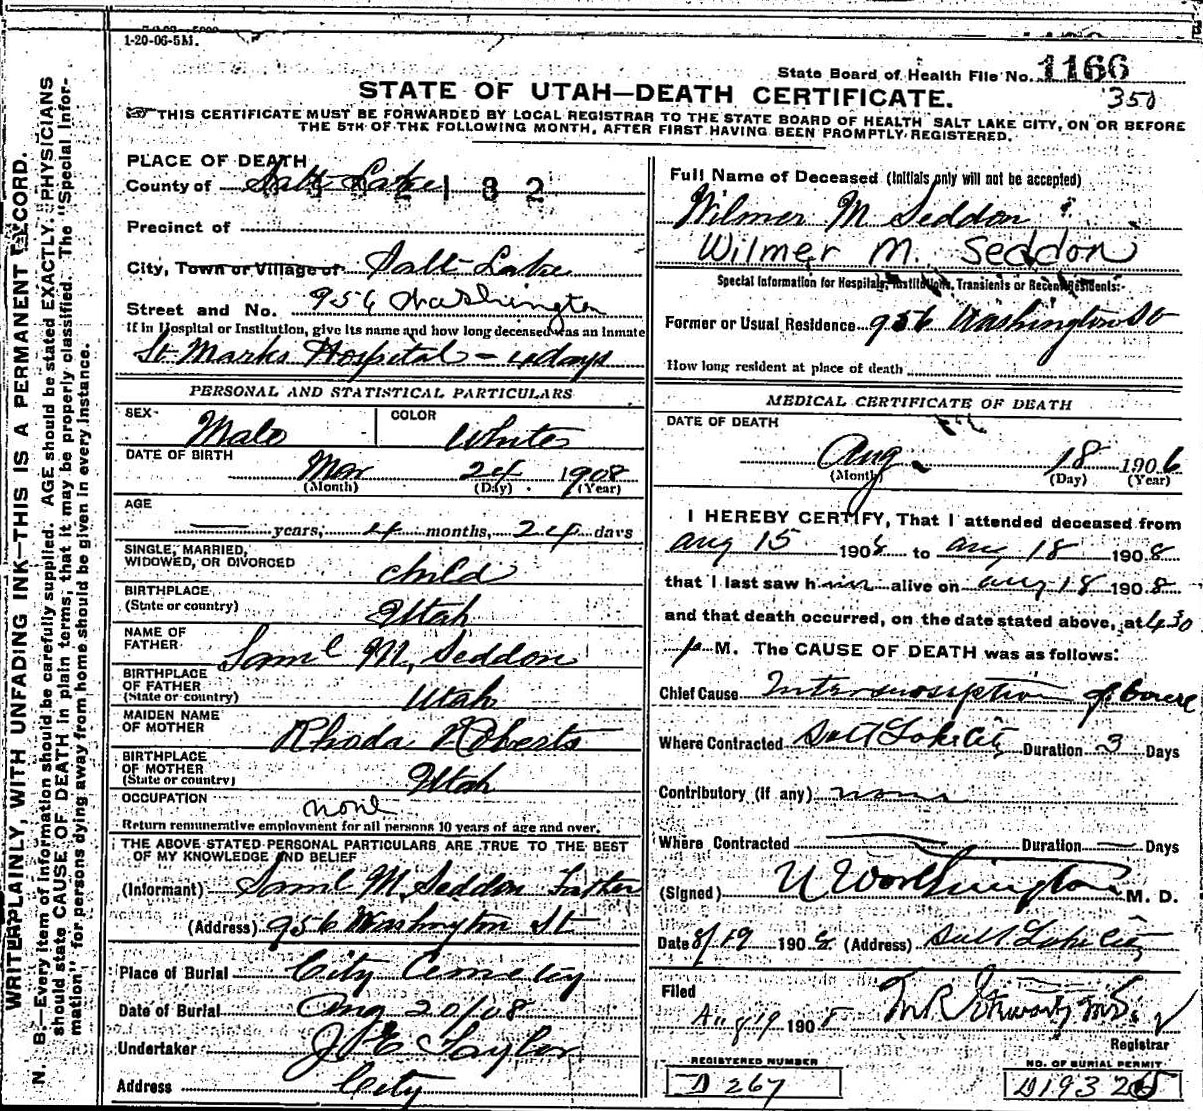 1-20-06-5M.
State Board of Health File No. 1166
350
STATE OF UTAH—DEATH CERTIFICATE.
THIS CERTIFICATE MUST BE FORWARDED BY LOCAL REGISTRAR TO THE STATE BOARD OF HEALTH SALT LAKE CITY, ON OR BEFORE
THE 5TH OF THE FOLLOWING MONTH, AFTER FIRST HAVING BEEN PROMPTLY REGISTERED.
WRITE PLAINLY, WITH UNFADING INK—THIS IS A PERMANENT RECORD.
N. B.—Every item of information should be carefully supplied. AGE should be stated EXACTLY. PHYSICIANS
should state CAUSE OF DEATH in plain terms, that it may be properly classified. The "Special Infor-
mation" for persons dying away from home should be given in every instance.
PLACE OF DEATH
County of Salt Lake 182
Precinct of
City, Town or Village of Salt Lake
Street and No. 956 Washington
If in Hospital or Institution, give its name and how long deceased was an inmate
St Marks Hospital - 4 days
PERSONAL AND STATISTICAL PARTICULARS
SEX- Male COLOR White
DATE OF BIRTH Mar 24 1908
(Month) (Day) (Year)
AGE
years, 4 months, 24 days
SINGLE, MARRIED,
WIDOWED, OR DIVORCED child
BIRTHPLACE
(State or country) Utah
NAME OF
FATHER Saml M. Seddon
BIRTHPLACE
OF FATHER
(State or country) Utah
MAIDEN NAME
OF MOTHER Rhoda Roberts
BIRTHPLACE
OF MOTHER
(State or country) Utah
OCCUPATION none
Return remunerative employment for all persons 10 years of age and over.
THE ABOVE STATED PERSONAL PARTICULARS ARE TRUE TO THE BEST
OF MY KNOWLEDGE AND BELIEF
(Informant) Saml M. Seddon Father
(Address) 956 Washington St
Place of Burial City Cemetery
Date of Burial Aug 20/08
Undertaker J E Taylor
Address City
Full Name of Deceased (Initials only will not be accepted)
Wilmer M Seddon
Wilmer M. Seddon
Special Information for Hospitals, Institutions, Transients or Recent Residents:-
Former or Usual Residence 956 Washington St
How long resident at place of death
MEDICAL CERTIFICATE OF DEATH
DATE OF DEATH
Aug 18 1906
(Month) (Day) (Year)
I HEREBY CERTIFY, That I attended deceased from
Aug 15 1908 to Aug 18 1908
that I last saw him alive on Aug 18 1908
and that death occurred, on the date stated above, at 4:30
p M. The CAUSE OF DEATH was as follows:
Chief Cause Intersusception of bowel
Where Contracted Salt Lake City Duration 3 Days
Contributory (if any) none
Where Contracted Duration Days
(Signed) U Worthington M. D.
Date 8/19 1908 (Address) Salt Lake City
Filed
Aug 19 1908 M.D.
Registrar
REGISTERED NUMBER
D 267
NO. OF BURIAL PERMIT